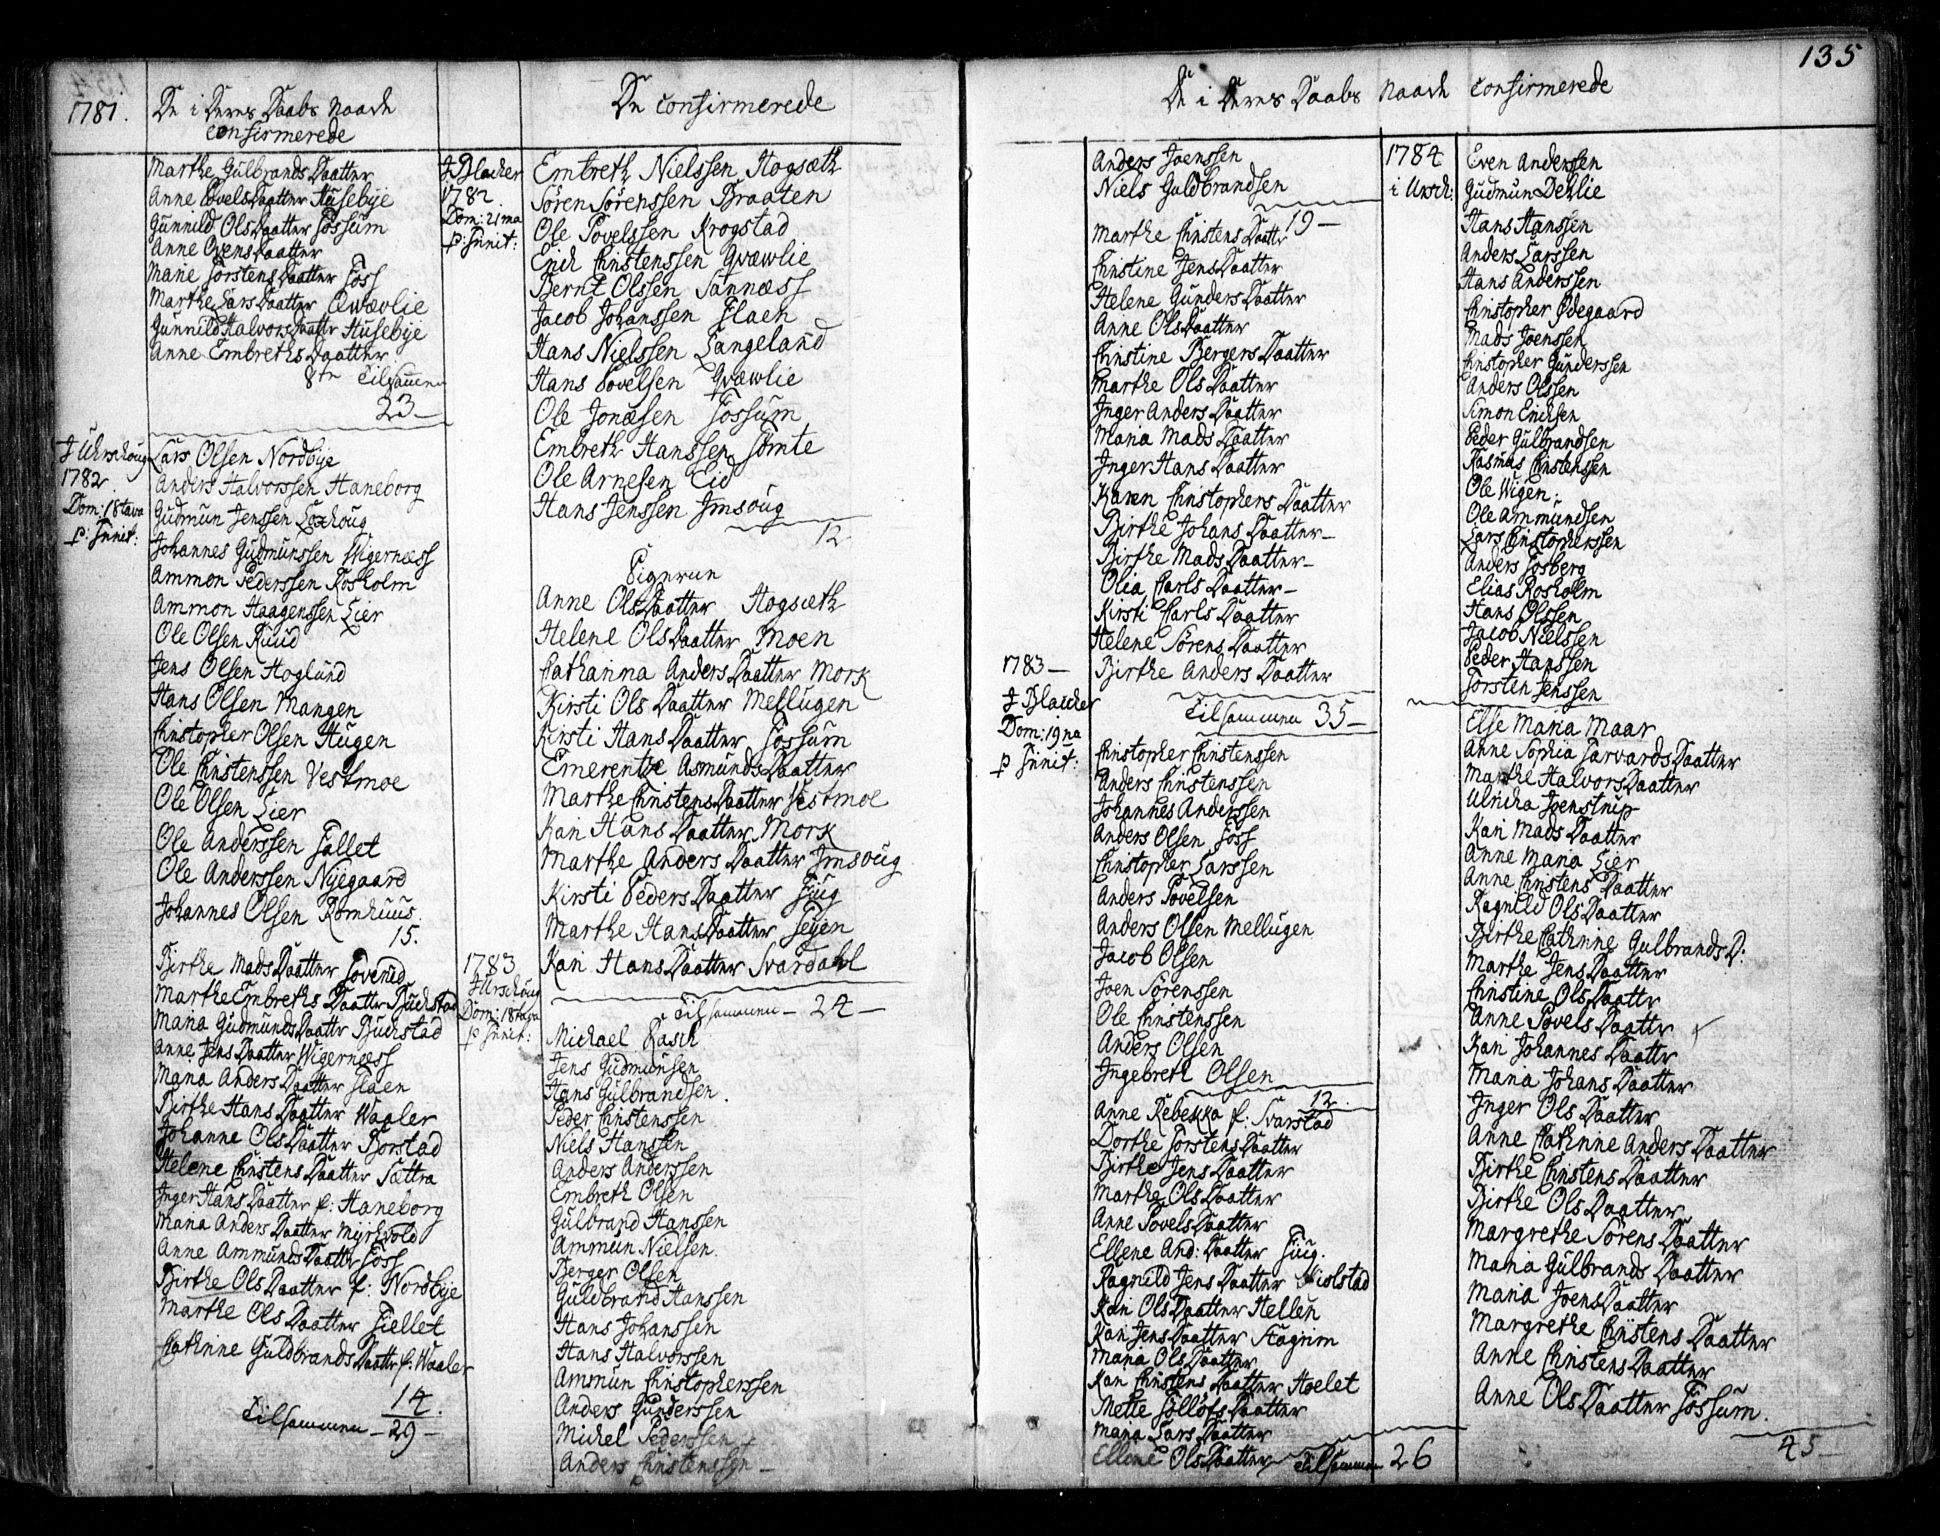 135
1781.
De i Deres Daabs Naade
confirmerede
Marthe Gulbrands Daatter
Anne Povels Daatter Husebÿe
Gunnild Ols Daatter Fossum
Anne Ovens Daatter
Marie Torstens Daatter Foss
Marthe Lars Daatter Qvævlie
Gunnild Halvors Daattr Husebÿe
Anne Embreths Daatter
8te Tilsamen
23—
J Uhrschoug
1782.
Dom: 18tava
p: Trinit:
Lars Olsen Nordbÿe
Anders Halvorssen Haneborg
Gudmun Jenssen Loxhoug
Johannes Gudmunssen Wigernæss
Ammon Pederssen Kosholm
Ammon Haagenssen Lier
Ole Olsen Ruud
Jens Olsen Hoglund
Hans Olsen Mangen
Christopher Olsen Haugen
Ole Christenssen Vestmoe
Ole Olsen Lier
Ole Anderssen Fallet
Ole Anderssen Nÿegaard
Johannes Olsen Romhuus.
15.
Birthe Mads Daatter Toverud
Marthe Embreths Daatter Buchstad
Maria Gudmunds Daattr Buchstad
Anne Jens Daatter Wigernæss
Maria Anders Daatter Flaen
Birthe Hans Daatter Waaler
Johanne Ols Daatter Borstad
Helene Christens Daatter Sættra
Inger Hans Daatter f: Haneborg
Maria Anders Daatter Myrhvold
Anne Ammunds Daatter Foss
Birthe Ols Daatter f: Nordbÿe
Marthe Ols Daatter Fiellet
Cathrine Guldbrands Daattr f: Waaler
14.
Tilsammen — 29 —
De confirmerede
J Blacher
1782.
Dom: 21ma
p: Trinit:
Embreth Nielssen Hogsæth
Sören Sörenssen Braaten
Ole Povelssen Krogstad
Erich Christenssen Qvævlie
Bernt Olssen Sannæss
Jacob Johanssen Flaen
Hans Nielssen Langeland
Hans Povelsen Qvævlie
Ole Jonæsen Fossum
Embreth Hanssen Tomte
Ole Arnesen Eid
Hans Jenssen Jmsoug
12
Pigerne
Anne Ols Daatter Hogsæth
Helene Ols Daatter Moen
Catharina Anders Daatter Mork
Kirsti Ols Daatter Mellugen
Kirsti Hans Daatter Fossum
Emerentze Asmunds Daatter
Marthe Christens Daatter Vestmoe
Kari Hans Daatter Mork
Marthe Anders Daatter Jmsoug
Kirsti Peders Daatter Fiug
Marthe Hans Daatter Feÿen
Kari Hans Daatter Svardahl
Tilsammen — 24 —
1783
J Urschoug
Dom: 18tava
p Trinit:
Michael Rasch
Jens Gudmunsen
Hans Gulbrandsen.
Peder Christenssen
Niels Hanssen
Anders Anderssen
Embreth Olsen
Gulbrand Hanssen
Ammun Nielsen.
Berger Olsen
Guldbrand Hanssen
Hans Johanssen
Hans Halvorssen
Amsmun Christopherssen
Anders Gunderssen
Michel Pederssen
Anders Christenssen —
De i Deres Daabs Naade confirmerede
Anders Joenssen
Niels Guldbrandsen
19 —
Marthe Christens Daattr
Christine Jens Daatter
Helene Gunders Daatter
Anne Ols Daatter
Christine Bergers Daatter
Marthe Ols Daatter
Inger Anders Daatter
Maria Mads Daatter
Inger Hans Daatter
Karen Christophers Daatter
Birthe Johans Daatter—
Birthe Mads Daatter—
Olia Carls Daatter—
Kirsti Carls Daatter
Helene Sörens Daatter
Birthe Anders Daatter
Tilsammen 35—
1783—
J Blacher
Dom: 19na
p Trinit:
Christopher Christenssen
Anders Christenssen
Johannes Anderssen
Anders Olsen Foss
Christopher Larssen
Anders Povelsen
Anders Olsen Mellugen
Jacob Olsen
Joen Sörenssen
Ole Christenssen
Anders Olsen
Ingebreth Olsen
12.
Anne Rebekka f: Svarstad
Dorthe Torstens Daatter
Birthe Jens Daatter
Marthe Ols Daatter
Anne Povels Daatter
Ellene And: Daatter Fiug.
Ragnild Jens Daatter
Kari Ols Daatter Hellen
Kari Jens Daatter
Maria Ols Daatter
Kari Christens Daatter
Mette Tollofs Daatter
Maria Lars Daatter
Ellene Ols Daatter
Tilsammen 26
1784
i Ursch:
Even Anderssen
Gudmun Dehlie
Hans Hanssen
Anders Larssen
Hans Anderssen
Christopher Ødegaard
Mads Joenssen
Christopher Gunderssen
Anders Olssen
Simon Erichsen
Peder Gulbrandsen
Rasmus Christenssen
Ole Wigen.
Ole Ammundsen
Lars Christopherssen
Anders Fosberg
Elias Rosholm
Hans Olssen
Jacob Nielssen
Peder Hanssen
Torsten Jenssen
Else Maria Maar
Anne Sophia Tarvards Daatter
Marthe Halvors Daatter
Ulricha Joenstrup
Kari Mads Daatter
Anne Maria Lier
Anne Christens Daatter
Ragnild Ols Daatter
Birthe Cathrine Gulbrands D:
Marthe Jens Daatter
Christine Ols Daattr
Anne Povels Daattr
Kari Johannes Daattr
Maria Johans Daatter
Inger Ols Daatter
Anne Cathrine Anders Daatter
Birthe Christens Daatter
Birthe Ols Daatter
Margrethe Sörens Daatter
Maria Gulbrands Daatter
Maria Joens Daatter
Margrethe Christens Daatter
Anne Christens Daatter
Anne Ols Daatter Fossum.
45